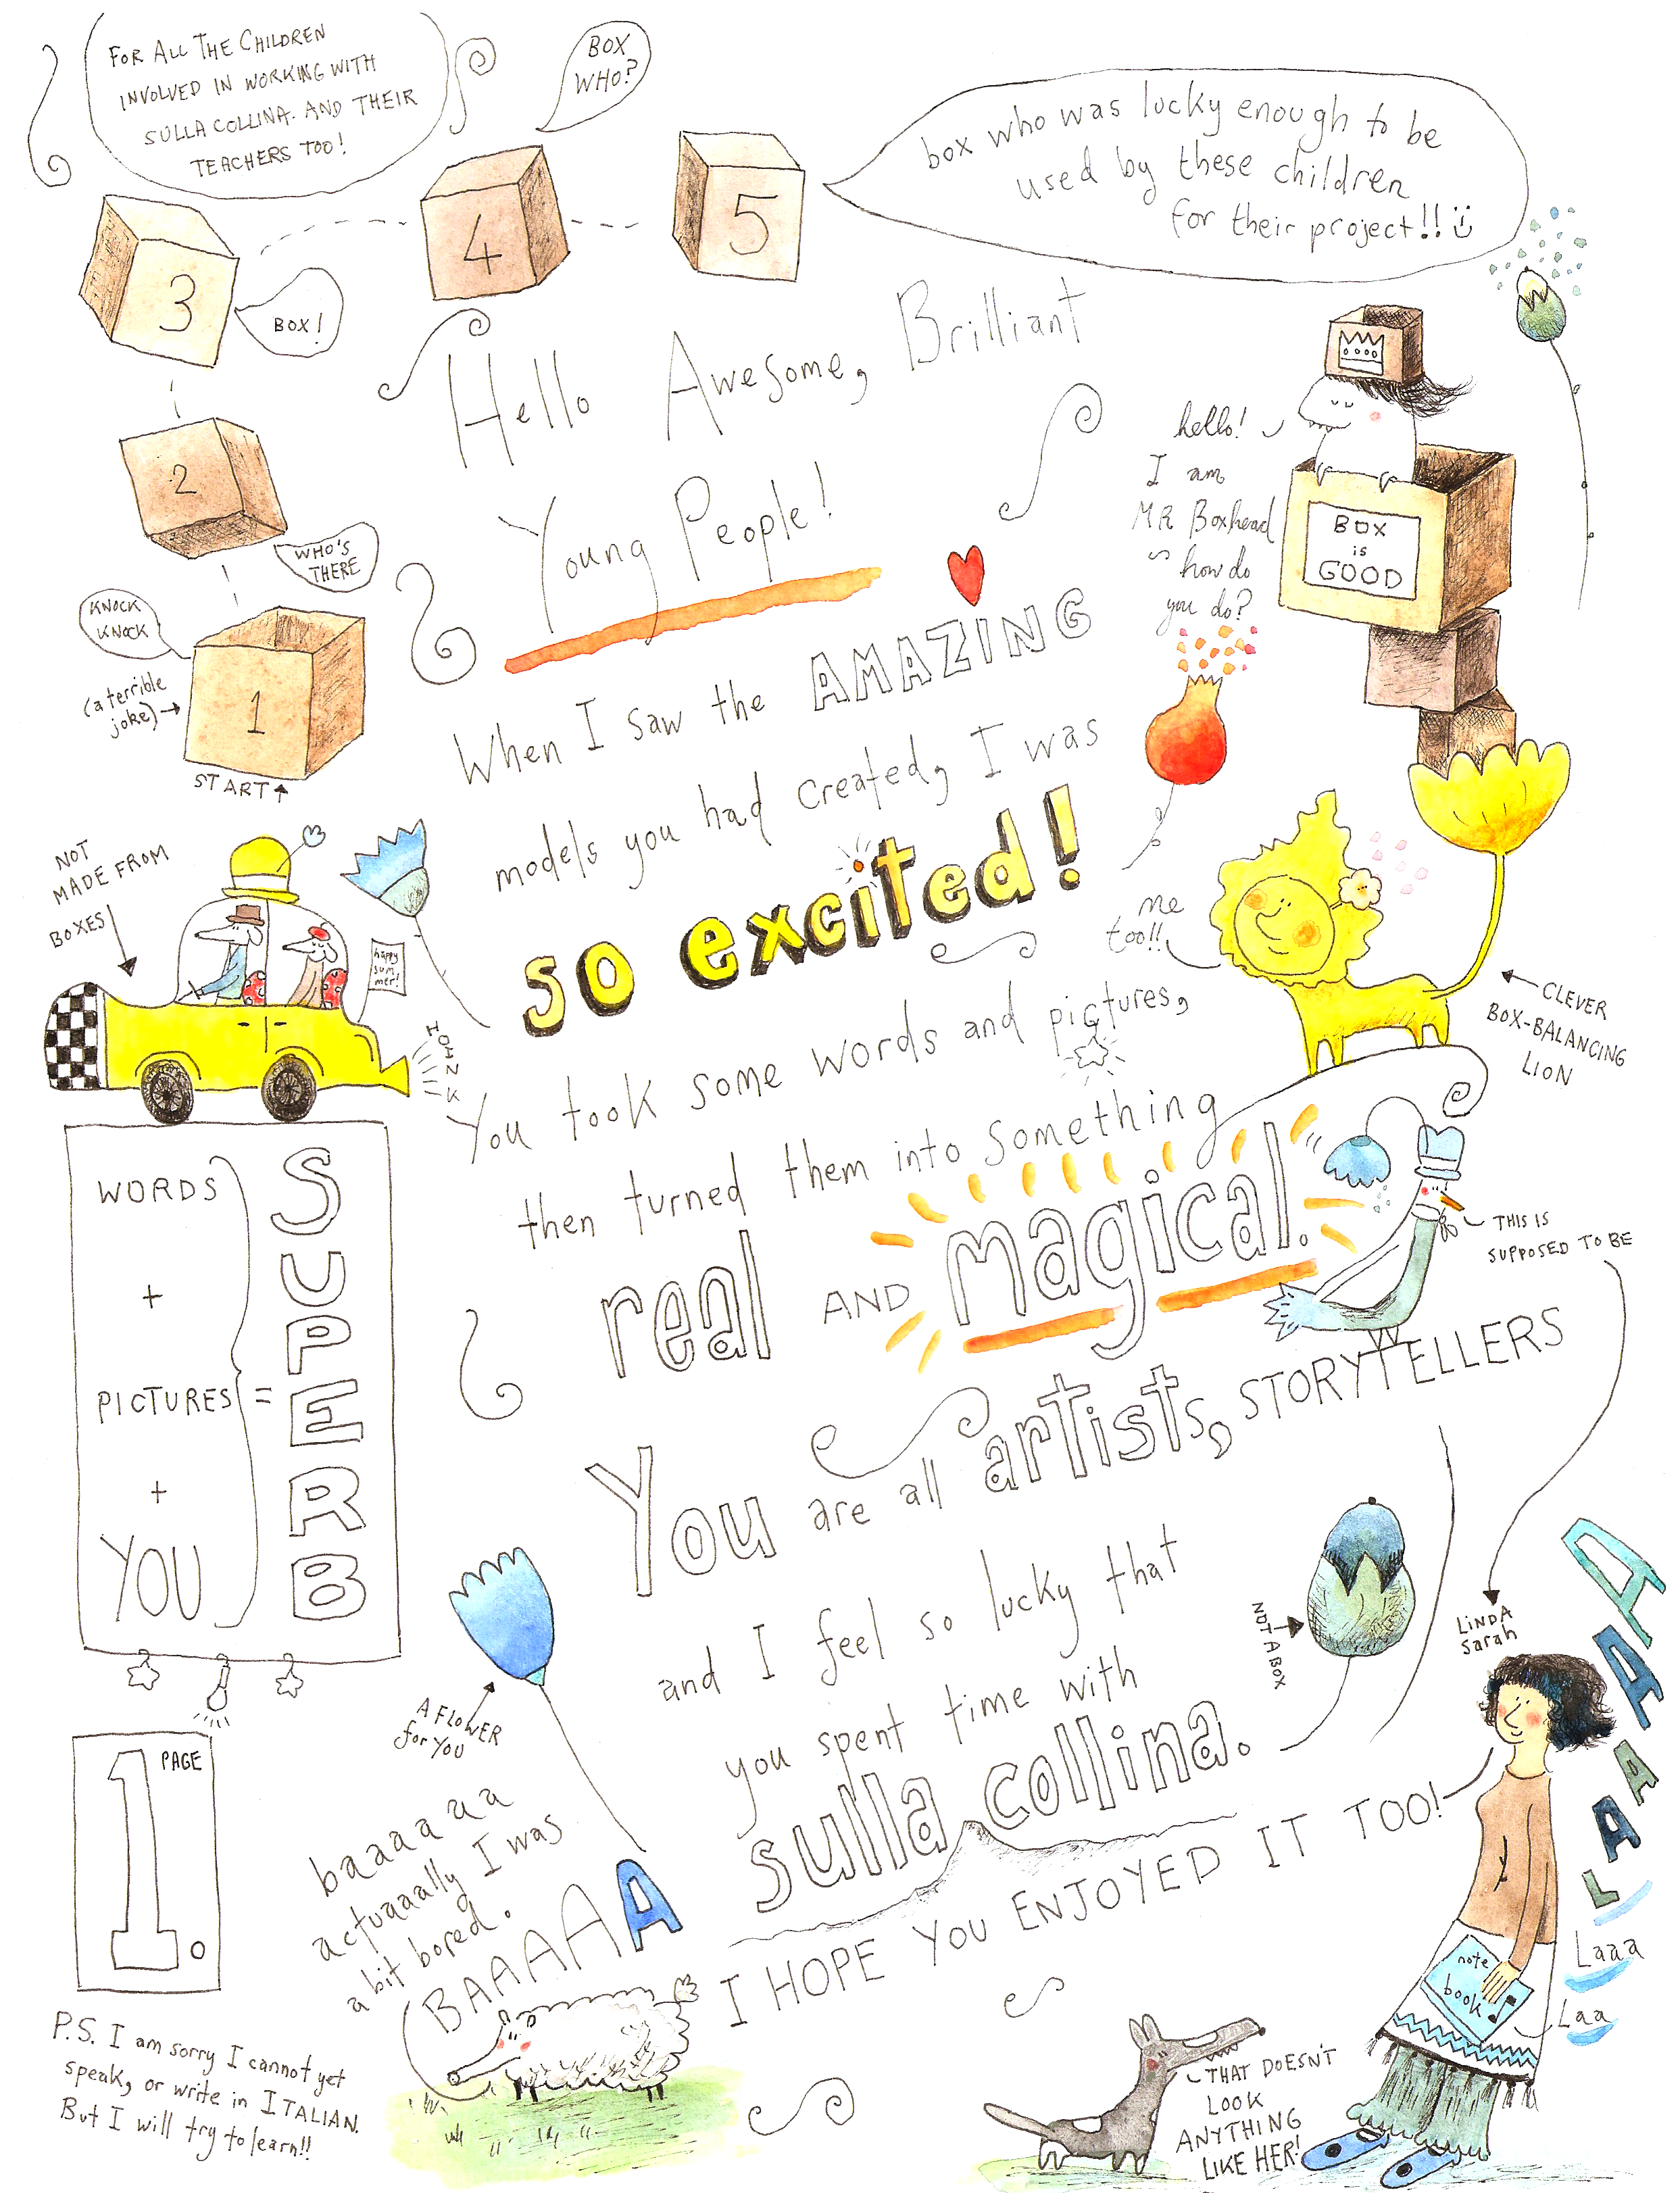 FOR ALL THE CHILDREN
INVOLVED IN WORKING WITH
SULLA COLLINA. AND THEIR
TEACHERS TOO!
BOX
WHO?
box who was lucky enough to be
used by these children
for their project!!
3
4
5
BOX!
2
WHO'S
THERE
KNOCK
KNOCK
(a terrible
joke)
1
START
Hello Awesome, Brilliant
Young People!
hello!
I am
MR Boxhead
~ how do
you do?
BOX
is
GOOD
When I saw the AMAZING
models you had created, I was
so excited!
me
too!!
CLEVER
BOX-BALANCING
LION
NOT
MADE FROM
BOXES
happy
sum
mer!
HONK
You took some words and pictures,
then turned them into something
real AND magical.
THIS IS
SUPPOSED TO BE
LINDA
Sarah
WORDS
+
PICTURES
+
YOU
=
SUPERB
You are all artists, STORYTELLERS
and I feel so lucky that
you spent time with
sulla collina.
I HOPE YOU ENJOYED IT TOO!
NOT A BOX
A FLOWER
for YOU
PAGE
1.
baaaaaa
actuaaally I was
a bit bored.
BAAAAAA
P.S. I am sorry I cannot yet
speak, or write in ITALIAN.
But I will try to learn!!
THAT DOESN'T
LOOK
ANYTHING
LIKE HER!
note
book
Laa
Laaa
LAAAA